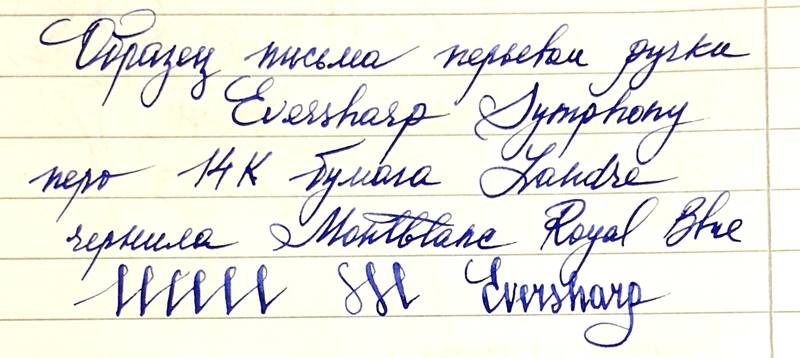 Образец письма перьевой ручки
Eversharp Symphony
перо 14К бумага Landre
чернила Montblanc Royal Blue
Eversharp